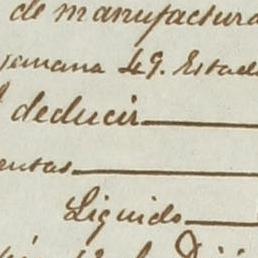 de manufactura
semana 49. Estado
deducir
entas
Liquido